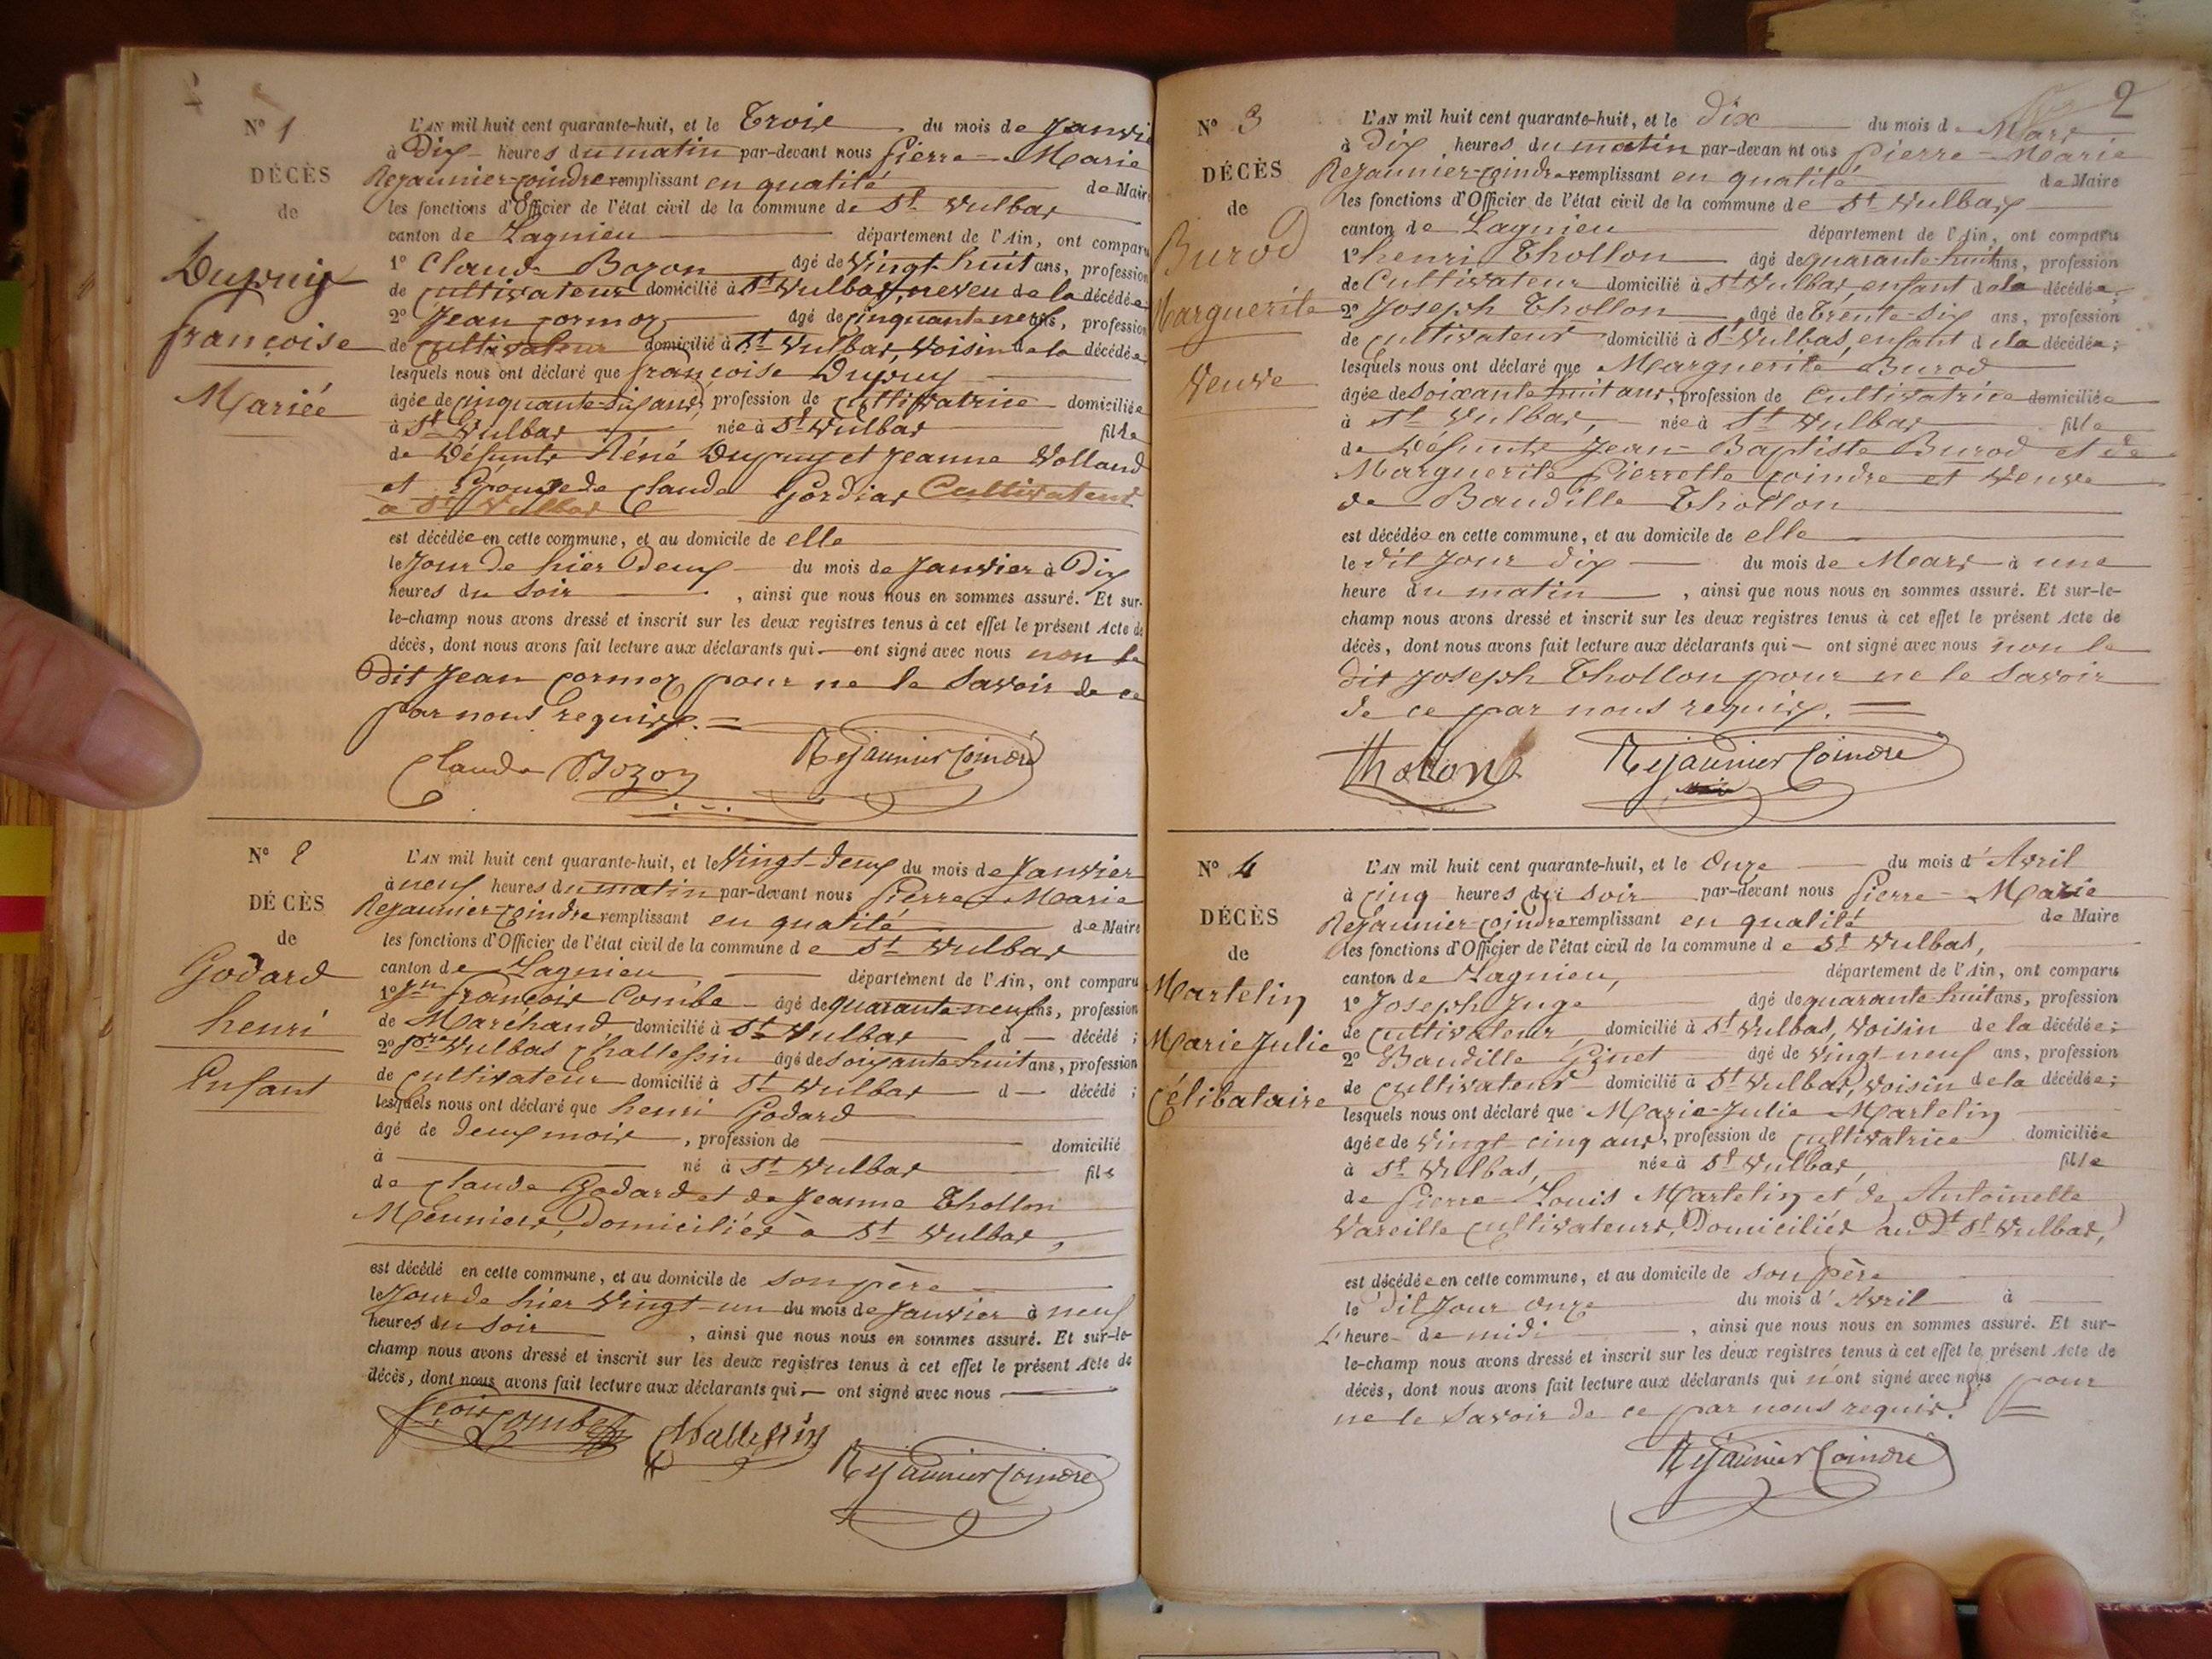 Nº 1
DÉCÈS
de
Dupuy
françoise
Mariée
L'AN mil huit cent quarante-huit, et le Trois du mois de Janvi
à Dix heures du matin par-devant nous pierre-Marie
Rejaunier-Coindre remplissant en qualité de Maire
les fonctions d'Officier de l'état civil de la commune de St Vulbas
canton de Lagnieu département de l'Ain, ont comparu
1º Claude Bozon âgé de Vingt-huit ans, profession
de Cultivateur domicilié à St Vulbas, neveu de la décédée
2º Jean Cormoz âgé de Cinquante neuf ans, profession
de Cultivateur domicilié à St Vulbas, Voisin de la décédée
lesquels nous ont déclaré que françoise Dupuy
âgée de Cinquante-six ans, profession de Cultivatrice domiciliée
à St Vulbas née à St Vulbas fille
de Défunts Réné Dupuy et Jeanne Volland
et Epouse de Claude Gordias Cultivateur
à St Vulbas
est décédée en cette commune, et au domicile de elle
le Jour de hier Deux du mois de Janvier à Dix
heures du Soir , ainsi que nous nous en sommes assuré. Et sur-
le-champ nous avons dressé et inscrit sur les deux registres tenus à cet effet le présent Acte de
décès, dont nous avons fait lecture aux déclarants qui ont signé avec nous non le
Dit Jean Cormoz pour ne le Savoir de ce
par nous requis.
Claude Bozon Rejaunier Coindre
Nº 2
DÉCÈS
de
Godard
henri
Enfant
L'AN mil huit cent quarante-huit, et le Vingt-deux du mois de Janvier
à neuf heures du matin par-devant nous pierre-Marie
Rejaunier-Coindre remplissant en qualité de Maire
les fonctions d'Officier de l'état civil de la commune de St Vulbas
canton de Lagnieu département de l'Ain, ont comparu
1º Jn françois Combe âgé de quarante neuf ans, profession
de Maréchand domicilié à St Vulbas d décédé ;
2º pre Vulbas Challessin âgé de soixante huit ans, profession
de Cultivateur domicilié à St Vulbas d décédé ;
lesquels nous ont déclaré que henri Godard
âgé de deux mois , profession de domicilié
à né à St Vulbas fils
de Claude Godard et de Jeanne Thollon
Meuniers, Domiciliés à St Vulbas,
est décédé en cette commune, et au domicile de son père
le Jour de hier Vingt-un du mois de Janvier à neuf
heures du soir , ainsi que nous nous en sommes assuré. Et sur-le-
champ nous avons dressé et inscrit sur les deux registres tenus à cet effet le présent Acte de
décès, dont nous avons fait lecture aux déclarants qui ont signé avec nous
fçois Combe Challessin
Rejaunier Coindre
2
Nº 3
DÉCÈS
de
Burod
Marguerite
Veuve
L'AN mil huit cent quarante-huit, et le dix du mois de Mars
à Dix heures du matin par-devan nt ous pierre-Marie
Rejaunier-Coindre remplissant en qualité de Maire
les fonctions d'Officier de l'état civil de la commune de St Vulbas
canton de Lagnieu département de l'Ain, ont comparu
1º henri Thollon âgé de quarante-huit ans, profession
de Cultivateur domicilié à St Vulbas, enfant de la décédée
2º Joseph Thollon âgé de Trente-Six ans, profession
de Cultivateur domicilié à St Vulbas, enfant de la décédée ;
lesquels nous ont déclaré que Marguerite Burod
âgée de Soixante huit ans, profession de Cultivatrice domiciliée
à St Vulbas, née à St Vulbas fille
de Défunts Jean-Baptiste Burod et de
Marguerite pierrette Coindre et Veuve
de Baudille Thollon
est décédée en cette commune, et au domicile de elle
le dit Jour dix du mois de Mars à une
heure du matin , ainsi que nous nous en sommes assuré. Et sur-le-
champ nous avons dressé et inscrit sur les deux registres tenus à cet effet le présent Acte de
décès, dont nous avons fait lecture aux déclarants qui ont signé avec nous non le
dit Joseph Thollon pour ne le Savoir
de ce par nous requis.
Thollon Rejaunier Coindre
Nº 4
DÉCÈS
de
Martelin
Marie Julie
Célibataire
L'AN mil huit cent quarante-huit, et le Onze du mois d'Avril
à Cinq heures du soir par-devant nous pierre-Marie
Rejaunier-Coindre remplissant en qualité de Maire
les fonctions d'Officier de l'état civil de la commune de St Vulbas,
canton de Lagnieu, département de l'Ain, ont comparu
1º Joseph Juge âgé de quarante-huit ans, profession
de Cultivateur domicilié à St Vulbas, Voisin de la décédée ;
2º Baudille Ginet âgé de Vingt-neuf ans, profession
de Cultivateur domicilié à St Vulbas, Voisin de la décédée ;
lesquels nous ont déclaré que Marie-Julie Martelin
âgée de Vingt-cinq ans, profession de Cultivatrice domiciliée
à St Vulbas, née à St Vulbas, fille
de pierre-Louis Martelin et de Antoinette
Vareille Cultivateurs, Domiciliés au Dt St Vulbas,
est décédée en cette commune, et au domicile de son père
le dit Jour onze du mois d'Avril à
L'heure de midi , ainsi que nous nous en sommes assuré. Et sur-
le-champ nous avons dressé et inscrit sur les deux registres tenus à cet effet le présent Acte de
décès, dont nous avons fait lecture aux déclarants qui n'ont signé avec nous pour
ne le Savoir de ce par nous requis.
Rejaunier Coindre